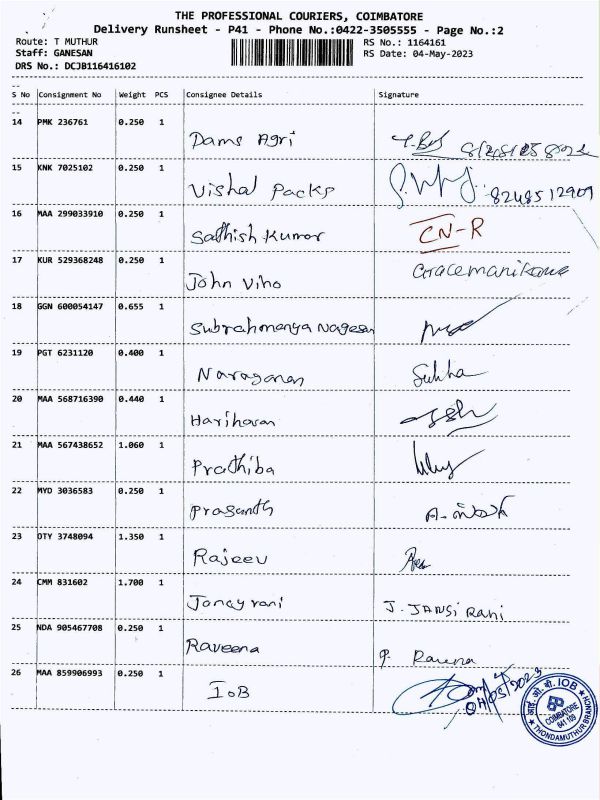 THE PROFESSIONAL COURIERS, COIMBATORE
Delivery Runsheet - P41 - Phone No.:0422-3505555 - Page No.:2
Route: T MUTHUR RS No.: 1164161
Staff: GANESAN RS Date: 04-May-2023
DRS No.: DCJB116416102
S No Consignment No Weight PCS Consignee Details Signature
14 PMK 236761 0.250 1 Dams Agri
15 KNK 7025102 0.250 1 Vishal Packs 8248512909
16 MAA 299033910 0.250 1 Sathish Kumar CN-R
17 KUR 529368248 0.250 1 John Vino
18 GGN 600054147 0.655 1 Subrahmanya Nagesan
19 PGT 6231120 0.400 1 Narayanan Sukha
20 MAA 568716390 0.440 1 Hariharan
21 MAA 567438652 1.060 1 Prathiba
22 MYD 3036583 0.250 1 Prasanth
23 OTY 3748094 1.350 1 Rajeev
24 CMM 831602 1.700 1 Jancy rani J. JANSi Rani
25 NDA 905467708 0.250 1 Raveena P. Raveena
26 MAA 859906993 0.250 1 IOB 04/05/2023
आई. ओ. बी. IOB
COIMBATORE
641 109
THONDAMUTHUR BRANCH